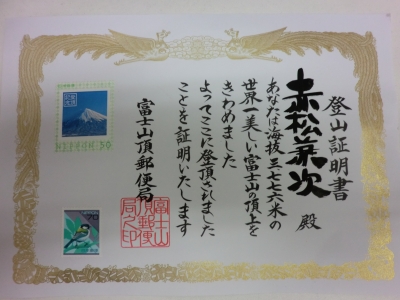 登山証明書
赤松兼次 殿
あなたは海抜三七七六米の
世界一美しい富士山の頂上を
きわめました
よってここに登頂されました
ことを証明いたします
富士山頂郵便局
富士山
頂郵便
局之印
50
70